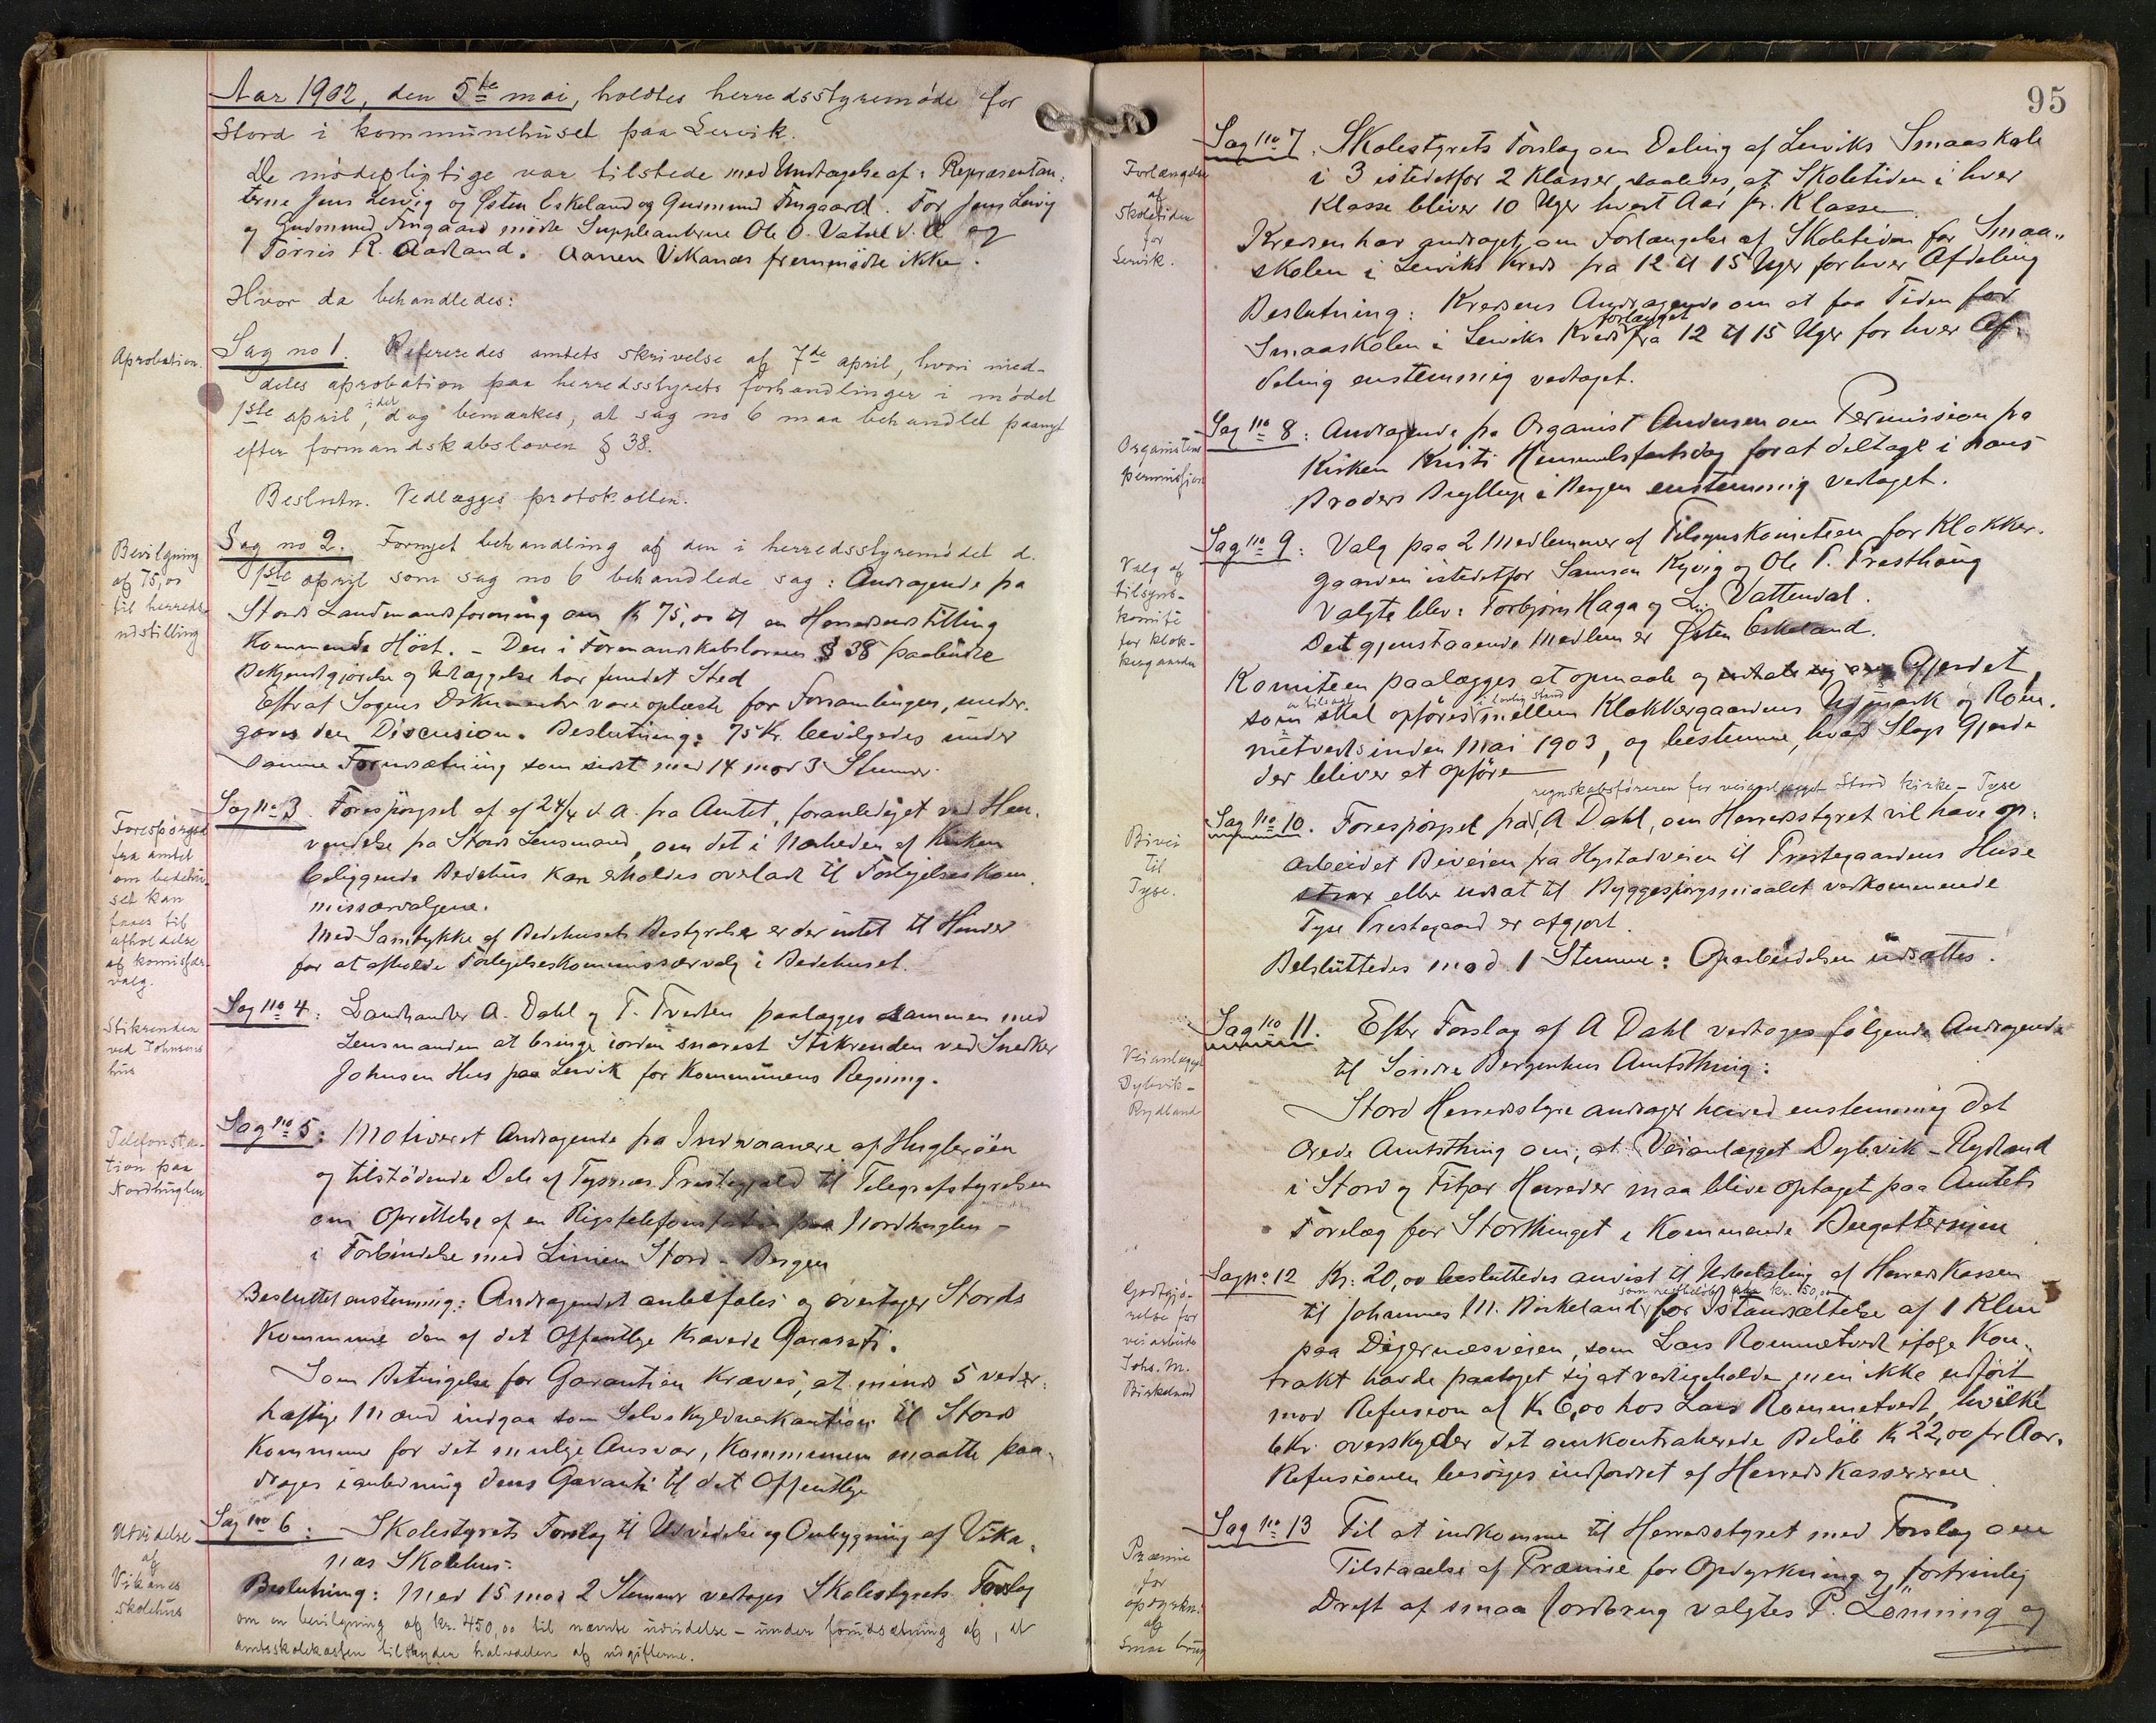 Aar 1902, den 5te mai, holdtes herredsstyremøde for
Stord i kommunehuset paa Lervik.
De mødepligtige var tilstede med Undtagelse af: Repræsentan-
terne Jens Lervig og Østen Eskeland og Gudmund Tingaard. For Jens Lervig
og Gudmund Tingaard mødte Suppleanterne Ole O. Vatne og
Torris R. Aadland. Aanen Vikanæs fremmødte ikke.
Hvor da behandledes:
Aprobation.
Sag no 1. Refereredes amtets skrivelse af 7de april, hvori med-
deles aprobation paa herredsstyrets forhandlinger i mødet
1ste april, idet dog bemærkes, at sag no 6 maa behandlet paanyt
efter formandskabsloven § 38.
Beslutn. Vedlægges protokollen.
Bevilgning
af 75,00
til herreds-
udstilling
Sag no 2. Fornyet behandling af den i herredsstyremødet d.
1ste april som sag no 6 behandlede sag: Andragende fra
Stords Landmandsforening om Kr 75,00 til en Herredsudstilling
Kommende Høst. - Den i Formandskabsloven § 38 paabudte
Bekjendtgjørelse og Udlæggelse har fundet Sted
Efterat Sagens Dokumenter vare oplæste for Forsamlingen, under-
gaves den Discusion. Beslutning: 75 Kr. bevilgedes under
samme Forudsætning som sidst med 14 mod 3 Stemmer.
Forespørgsel
fra amtet
om bedehu-
set kan
faaes til
afholdelse
af komisjær-
valg.
Sag no 3. Forespørgsel af 24/4 d. a. fra Amtet, foranlediget ved Hen-
vendelse fra Stords Lensmand, om det i Nærheden af Kirken
beliggende Bedehus kan erholdes overladt til Forligelseskom-
missærvalgene.
Med Samtykke af Bedehusets Bestyrelse er der intet til Hinder
for at afholde Forligelseskommissærvalg i Bedehuset.
Stikrenden
ved Johnsens
hus
Sag no 4: Landhandler A. Dahl og T. Tveten paalægges sammen med
Lensmanden at bringe iorden snarest Stikrenden ved Snedker
Johnsen Hus paa Lervik for Kommunens Regning.
Telefonsta-
tion paa
Nordhuglen
Sag no 5: Motiveret Andragende fra Indvaanere af Hugleröen
og tilstödende Dele af Tysnæs Prestegjeld til Telegrafstyrelsen
om Oprettelse af en Rigstelefonstation paa Nordhuglen -
i Forbindelse med Linien Stord - Bergen
Besluttet enstemmig: Andragendet anbefales og overtager Stords
Kommune den af det Offentlige krævede Garanti.
Som Betingelse for Garantien kræves, at minds 5 veder-
hæftige Mænd indgaa som Selvskyldnerkaution til Stords
Kommune for det mulige Ansvar, Kommunen maatte paa-
drages i anledning dens Garanti til det Offentlige
Utvidelse
af
Vikanes
skolehus
Sag no 6: Skolestyrets Forslag til Udvidelse og Ombygning af Vika-
næs Skolehus.
Beslutning: Med 15 mod 2 Stemmer vedtages Skolestyrets Forslag
om en bevilgning af kr. 450,00 til nævnte udvidelse - under forudsætning af, at
amtsskolekassen tilskyder halvdelen af udgifterne.
95
Forlængelse
af
skoletiden
for
Lervik.
Sag no 7. Skolestyrets Forslag om Deling af Lerviks Smaaskole
i 3 istedetfor 2 Klasser, saaledes, at Skoletiden i hver
Klasse bliver 10 Uger hvert Aar pr. Klasse.
Kredsen har andraget om Forlængelse af Skoletiden for Smaa-
skolen i Lerviks Kreds fra 12 til 15 Uger for hver Afdeling
Beslutning: Kredsens Andragende om at faa Tiden for
Smaaskolen i Lerviks Kreds forlænget fra 12 til 15 Uger for hver Af-
deling enstemmig vedtaget.
Organistens
permission
Sag no 8: Andragende fra Organist Andersen om Permission fra
Kirken Kristi Himmelfartsdag forat deltage i hans
Broders Bryllup i Bergen enstemmig vedtaget.
Valg af
tilsyns-
komite
for klok-
kergaarden
Sag no 9: Valg paa 2 Medlemmer af Tilsynskomiteen for Klokker-
gaarden istedetfor Samson Kyvig og Ole T. Præsthaug
Valgte blev: Torbjørn Haga og L. Vattendal.
Det gjenstaaende Medlem er Østen Eskeland.
Komiteen paalægges at opmaale og Gjerdet
som skal opføres i lovlig stand mellem Klokkergaardens Udmark og Rom-
metvedts inden Mai 1903, og bestemme, hvad Slags Gjerde
der bliver at opføre
Bivei
til
Tyse.
regnskabsføreren for veianlægget Stord kirke - Tyse
Sag no 10. Forespørgsel fra A Dahl, om Herredsstyret vil have op-
arbeidet Biveien fra Hystadveien til Prestegaardens Huse
strax eller udsat til Byggespørgsmaalet vedkommende
Tyse Prestegaard er afgjort.
Besluttedes mod 1 Stemme: Oparbeidelsen udsættes.
Veianlægget
Dybvik -
Rydland
Sag no 11. Efter Forslag af A Dahl vedtages følgende Andragende
til Söndre Bergenhus Amtsthing:
Stord Herredsstyre andrager herved enstemmig det
ærede Amtsthing om, at Veianlægget Dybvik - Rydland
i Stord og Fitjar Herreder maa blive optaget paa Amtets
Forelæg for Storthinget i Kommende Bugettermin.
Godtgjø-
relse for
veiarbeide
Johs. M.
Birkeland
Sag no 12 Kr: 20,00 besluttedes anvist til Udbetaling af Herredskassen
til Johannes M. Birkeland som restbeløb kr. 50,00 for Istandsættelse af 1 Klm
paa Digernæsveien, som Lars Rommetvedt ifølge Kon-
trakt havde paataget sig at vedligeholde men ikke udført
mod Refusion af Kr 6,00 hos Lars Rommetvedt, hvilke
6 Kr. overskyder det omkontraherede Beløb Kr 22,00 pr Aar.
Refusionen besørges indfordret af Herredskassereren
Præmie
for
opdyrkn.
af
smaa brug
Sag no 13 Til at indkomme til Herredsstyret med Forslag om
Tilstaaelse af Præmie for Opdyrkning og fortrinlig
Drift af smaa Jordbrug valgtes P. Lönning og